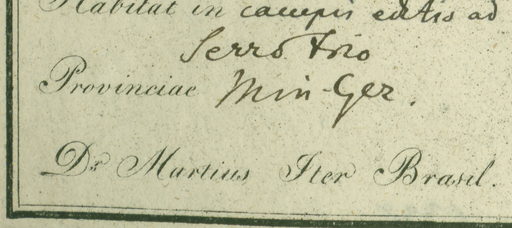 Habitat in campis editis ad
Serro frio
Provinciae Min-Ger.
Dr Martius Iter Brasil.